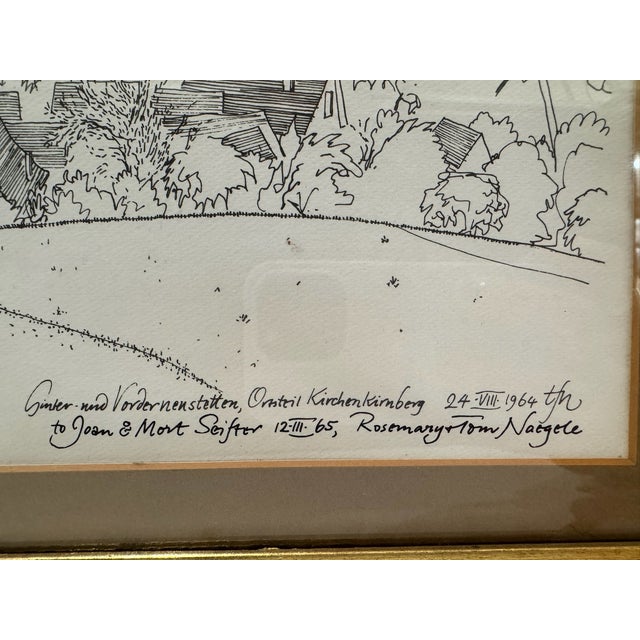 Hinter- und Vordernenstetten, Ortsteil Kirchenkirnberg 24·VIII·1964 tfn
to Joan & Mort Seifter 12·III·65, Rosemary + Tom Naegele